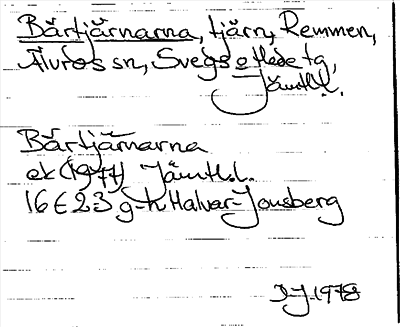 Bärtjärnarna, tjärn, Remmen,
Älvros sn, Svegs o Hede tg,
Jämtl.l.
Bärtjärnarna
ek (1977) Jämtl.l.
16 E 2-3 g-h Halvar-Jonsberg
DJ 1978